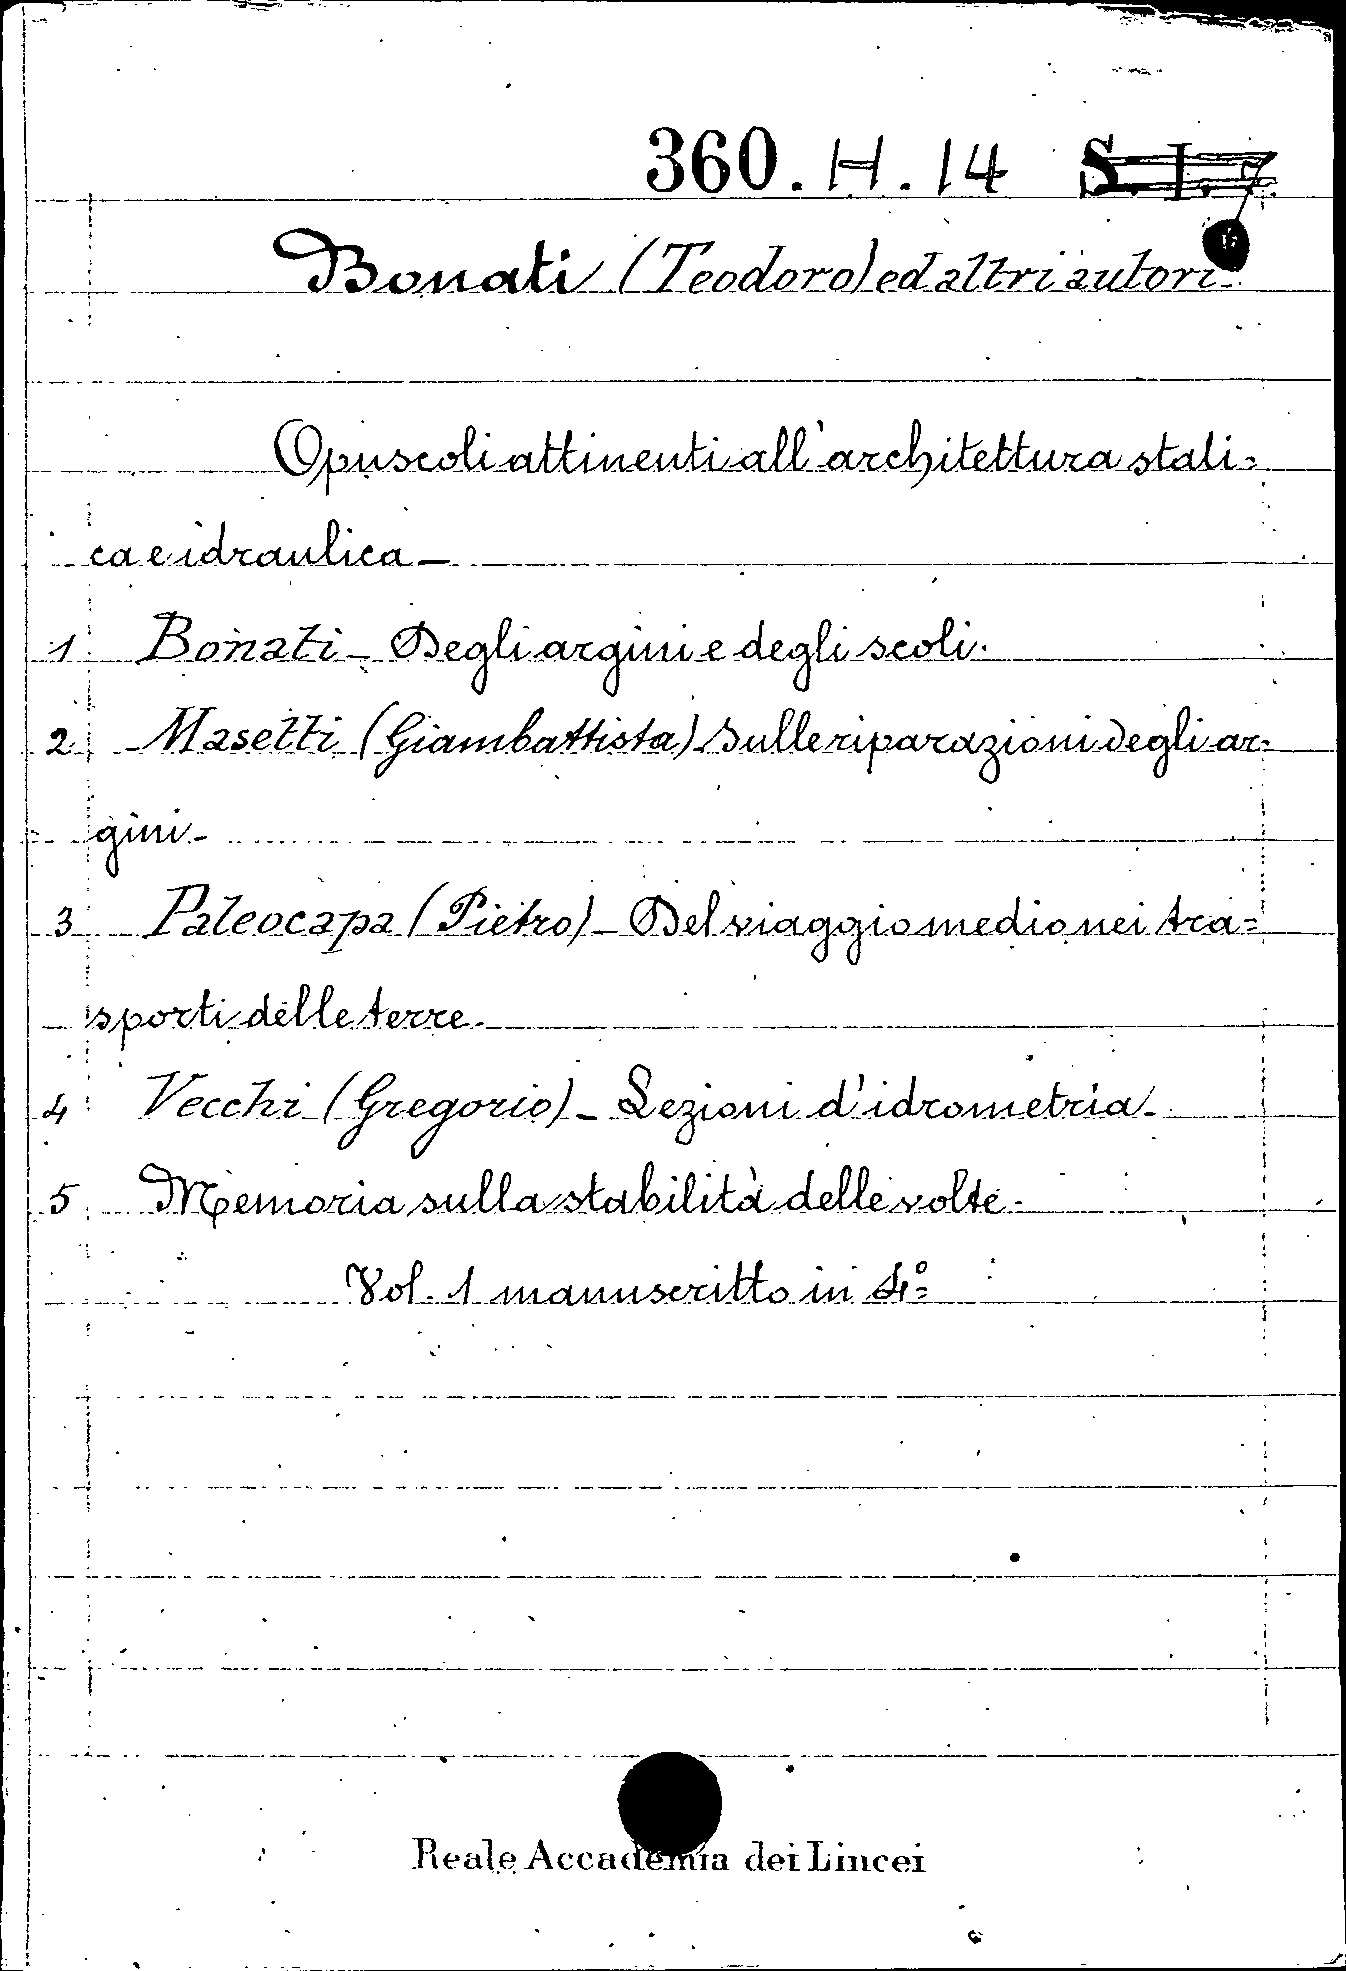 360. H. 14 S. I. 7.
Bonati (Teodoro) ed altri autori.
Opuscoli attinenti all'architettura stati=
ca e idraulica -
1 Bonati - Degli argini e degli scoli.
2 Masetti (Giambattista) Sulle riparazioni degli ar-
gini -
3 Paleocapa (Pietro) - Del viaggio medio nei tra=
sporti delle terre -
4 Vecchi (Gregorio) - Lezioni d'idrometria -
5 Memoria sulla stabilità delle volte -
Vol. 1 manuscritto in 4°
Reale Accademia dei Lincei